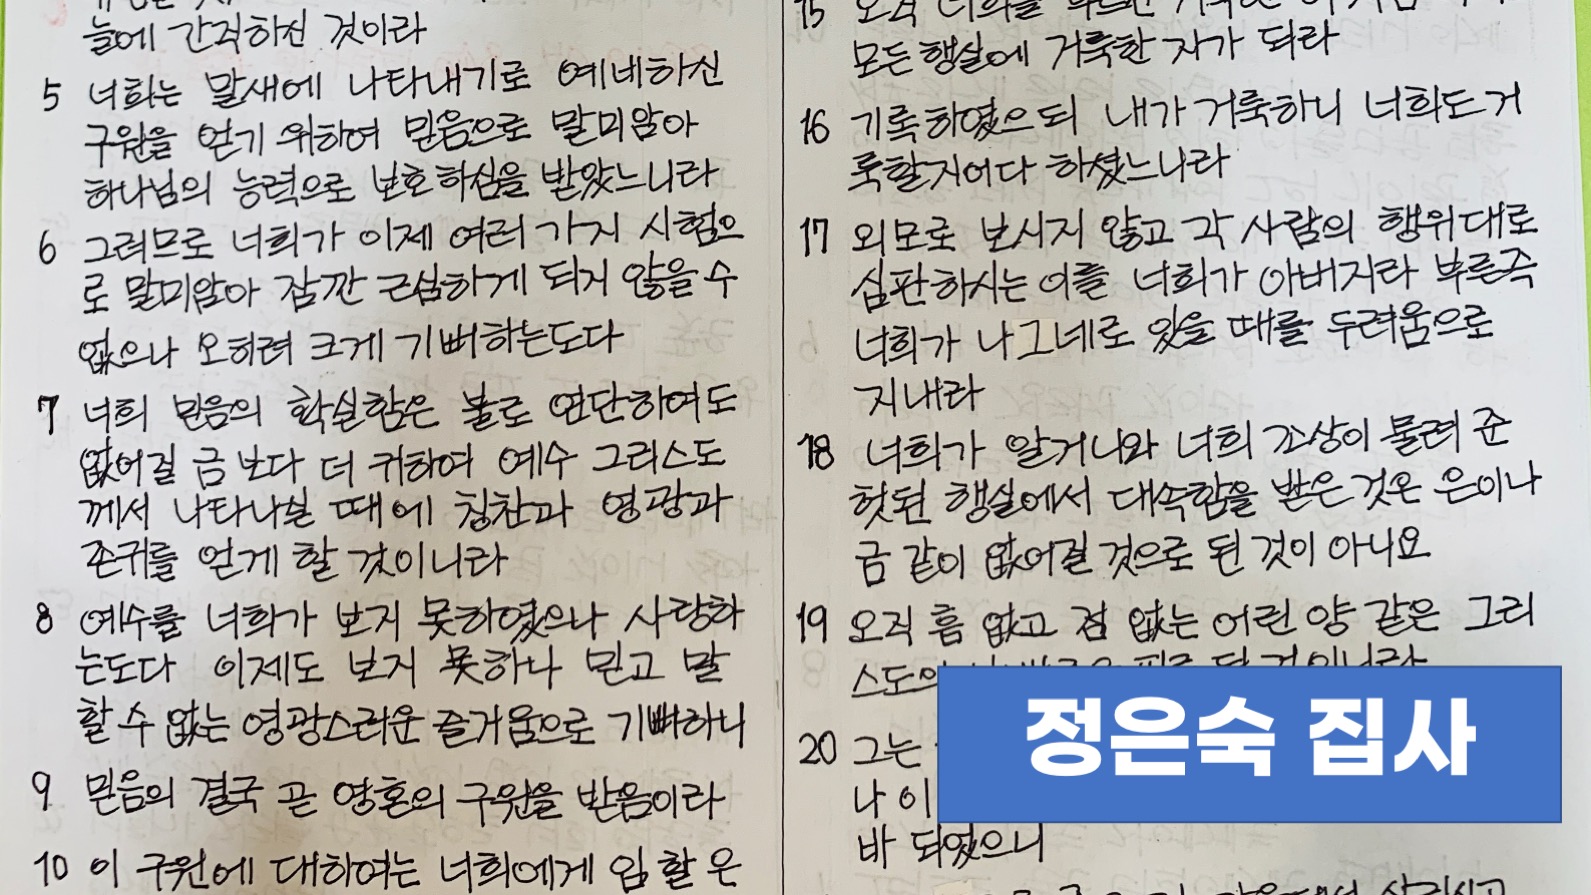 늘에 간직하신 것이라
5 너희는 말세에 나타내기로 예비하신
구원을 얻기 위하여 믿음으로 말미암아
하나님의 능력으로 보호하심을 받았느니라
6 그러므로 너희가 이제 여러 가지 시험으
로 말미암아 잠깐 근심하게 되지 않을 수
없으나 오히려 크게 기뻐하는도다
7 너희 믿음의 확실함은 불로 연단하여도
없어질 금 보다 더 귀하여 예수 그리스도
께서 나타나실 때에 칭찬과 영광과
존귀를 얻게 할 것이니라
8 예수를 너희가 보지 못하였으나 사랑하
는도다 이제도 보지 못하나 믿고 말
할 수 없는 영광스러운 즐거움으로 기뻐하니
9 믿음의 결국 곧 영혼의 구원을 받음이라
10 이 구원에 대하여는 너희에게 임 할 은
15 오직 너희를
모든 행실에 거룩한 자가 되라
16 기록하였으되 내가 거룩하니 너희도 거
룩할지어다 하셨느니라
17 외모로 보시지 않고 각 사람의 행위대로
심판하시는 이를 너희가 아버지라 부른즉
너희가 나그네로 있을 때를 두려움으로
지내라
18 너희가 알거니와 너희 조상이 물려 준
헛된 행실에서 대속함을 받은 것은 은이나
금 같이 없어질 것으로 된 것이 아니요
19 오직 흠 없고 점 없는 어린 양 같은 그리
스도의
20 그는
나 이
바 되었으니
정은숙 집사